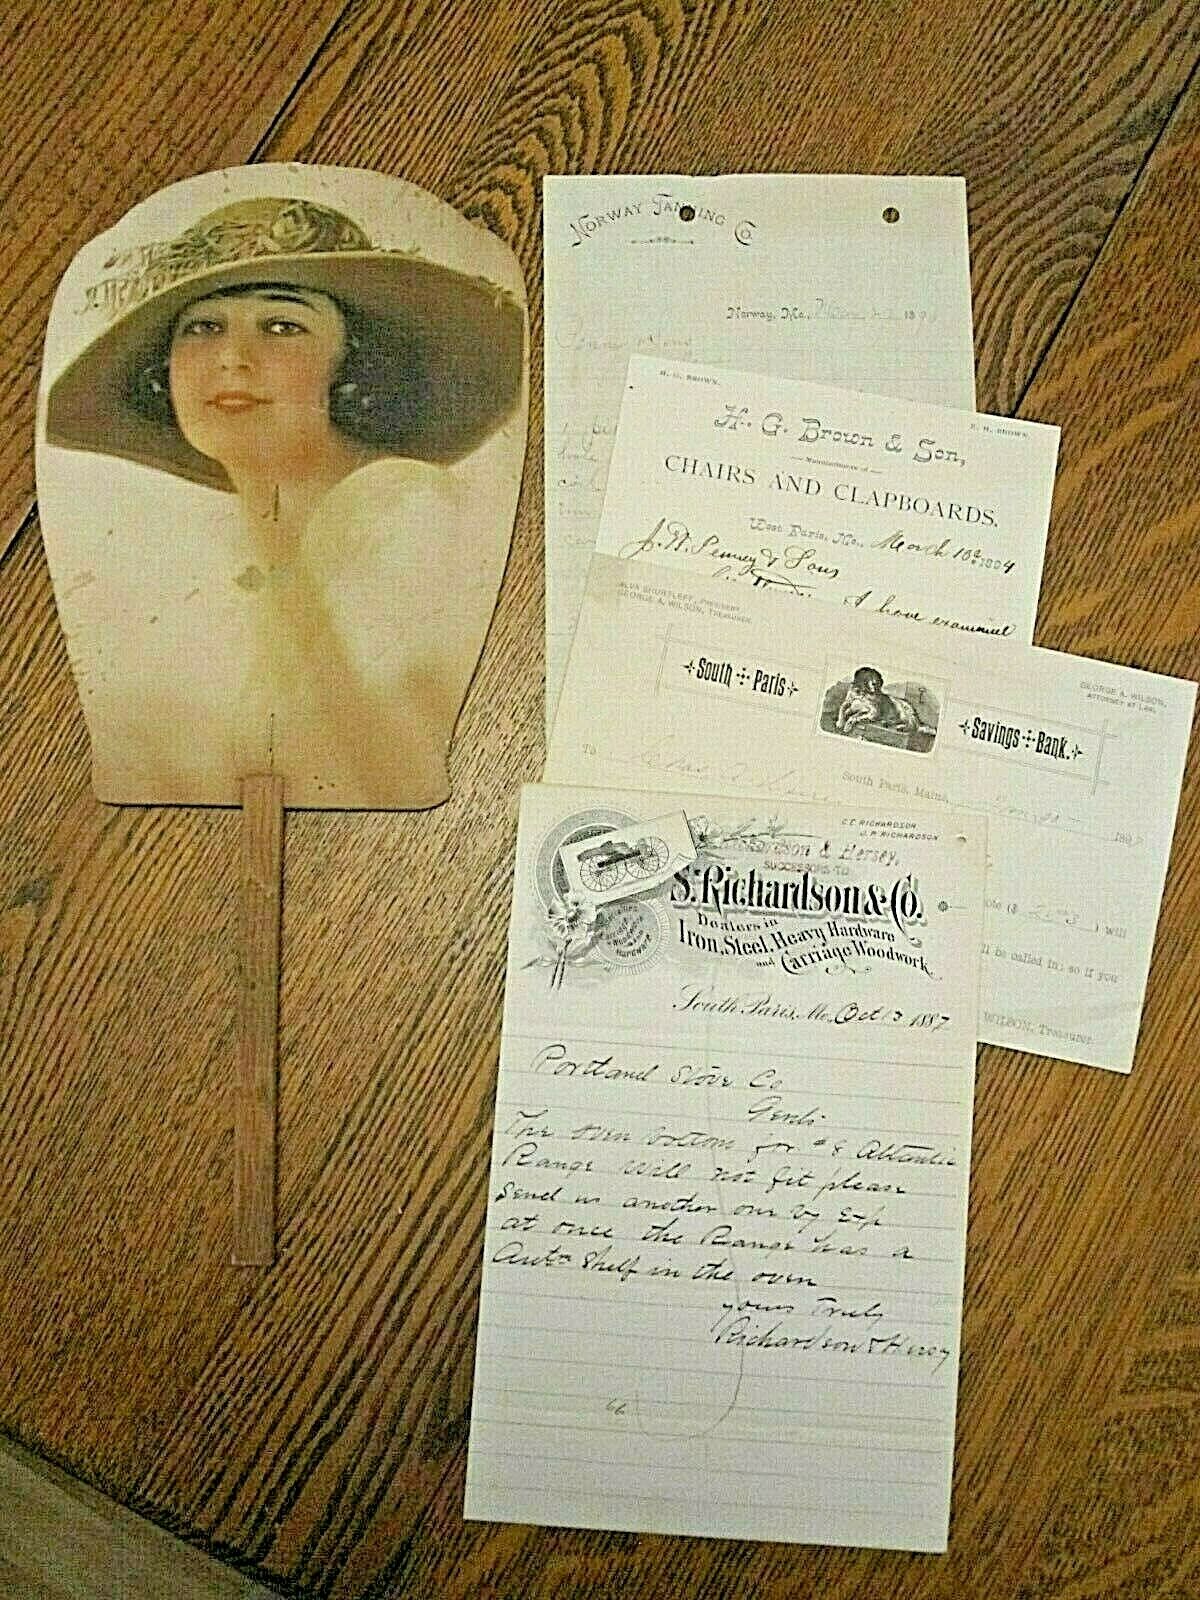 NORWAY TANNING CO.
Norway, Me., 189
H. G. BROWN.
E. H. BROWN
H. G. Brown & Son,
Manufacturers of
CHAIRS AND CLAPBOARDS.
West Paris, Me., March 10 1894
J. W. Penney & Sons
I have examined
ALVA SHURTLEFF, PRESIDENT
GEORGE A. WILSON, TREASURER
GEORGE A. WILSON,
ATTORNEY AT LAW.
South Paris
Savings Bank.
To
South Paris, Maine, 189
note ($ ) will
be called in; so if you
WILSON, Treasurer.
C. E. RICHARDSON
J. P. RICHARDSON
Richardson & Hersey,
SUCCESSORS TO
S. Richardson & Co.
Dealers in
Iron, Steel, Heavy Hardware
and Carriage Woodwork
South Paris, Me. Oct 13 1887
Portland Stove Co
Gents
The oven bottom for # 8 Atlantic
Range will not fit please
Send us another one by Exp
at once the Range has a
Shelf in the oven
yours Truly
Richardson & Hersey
66